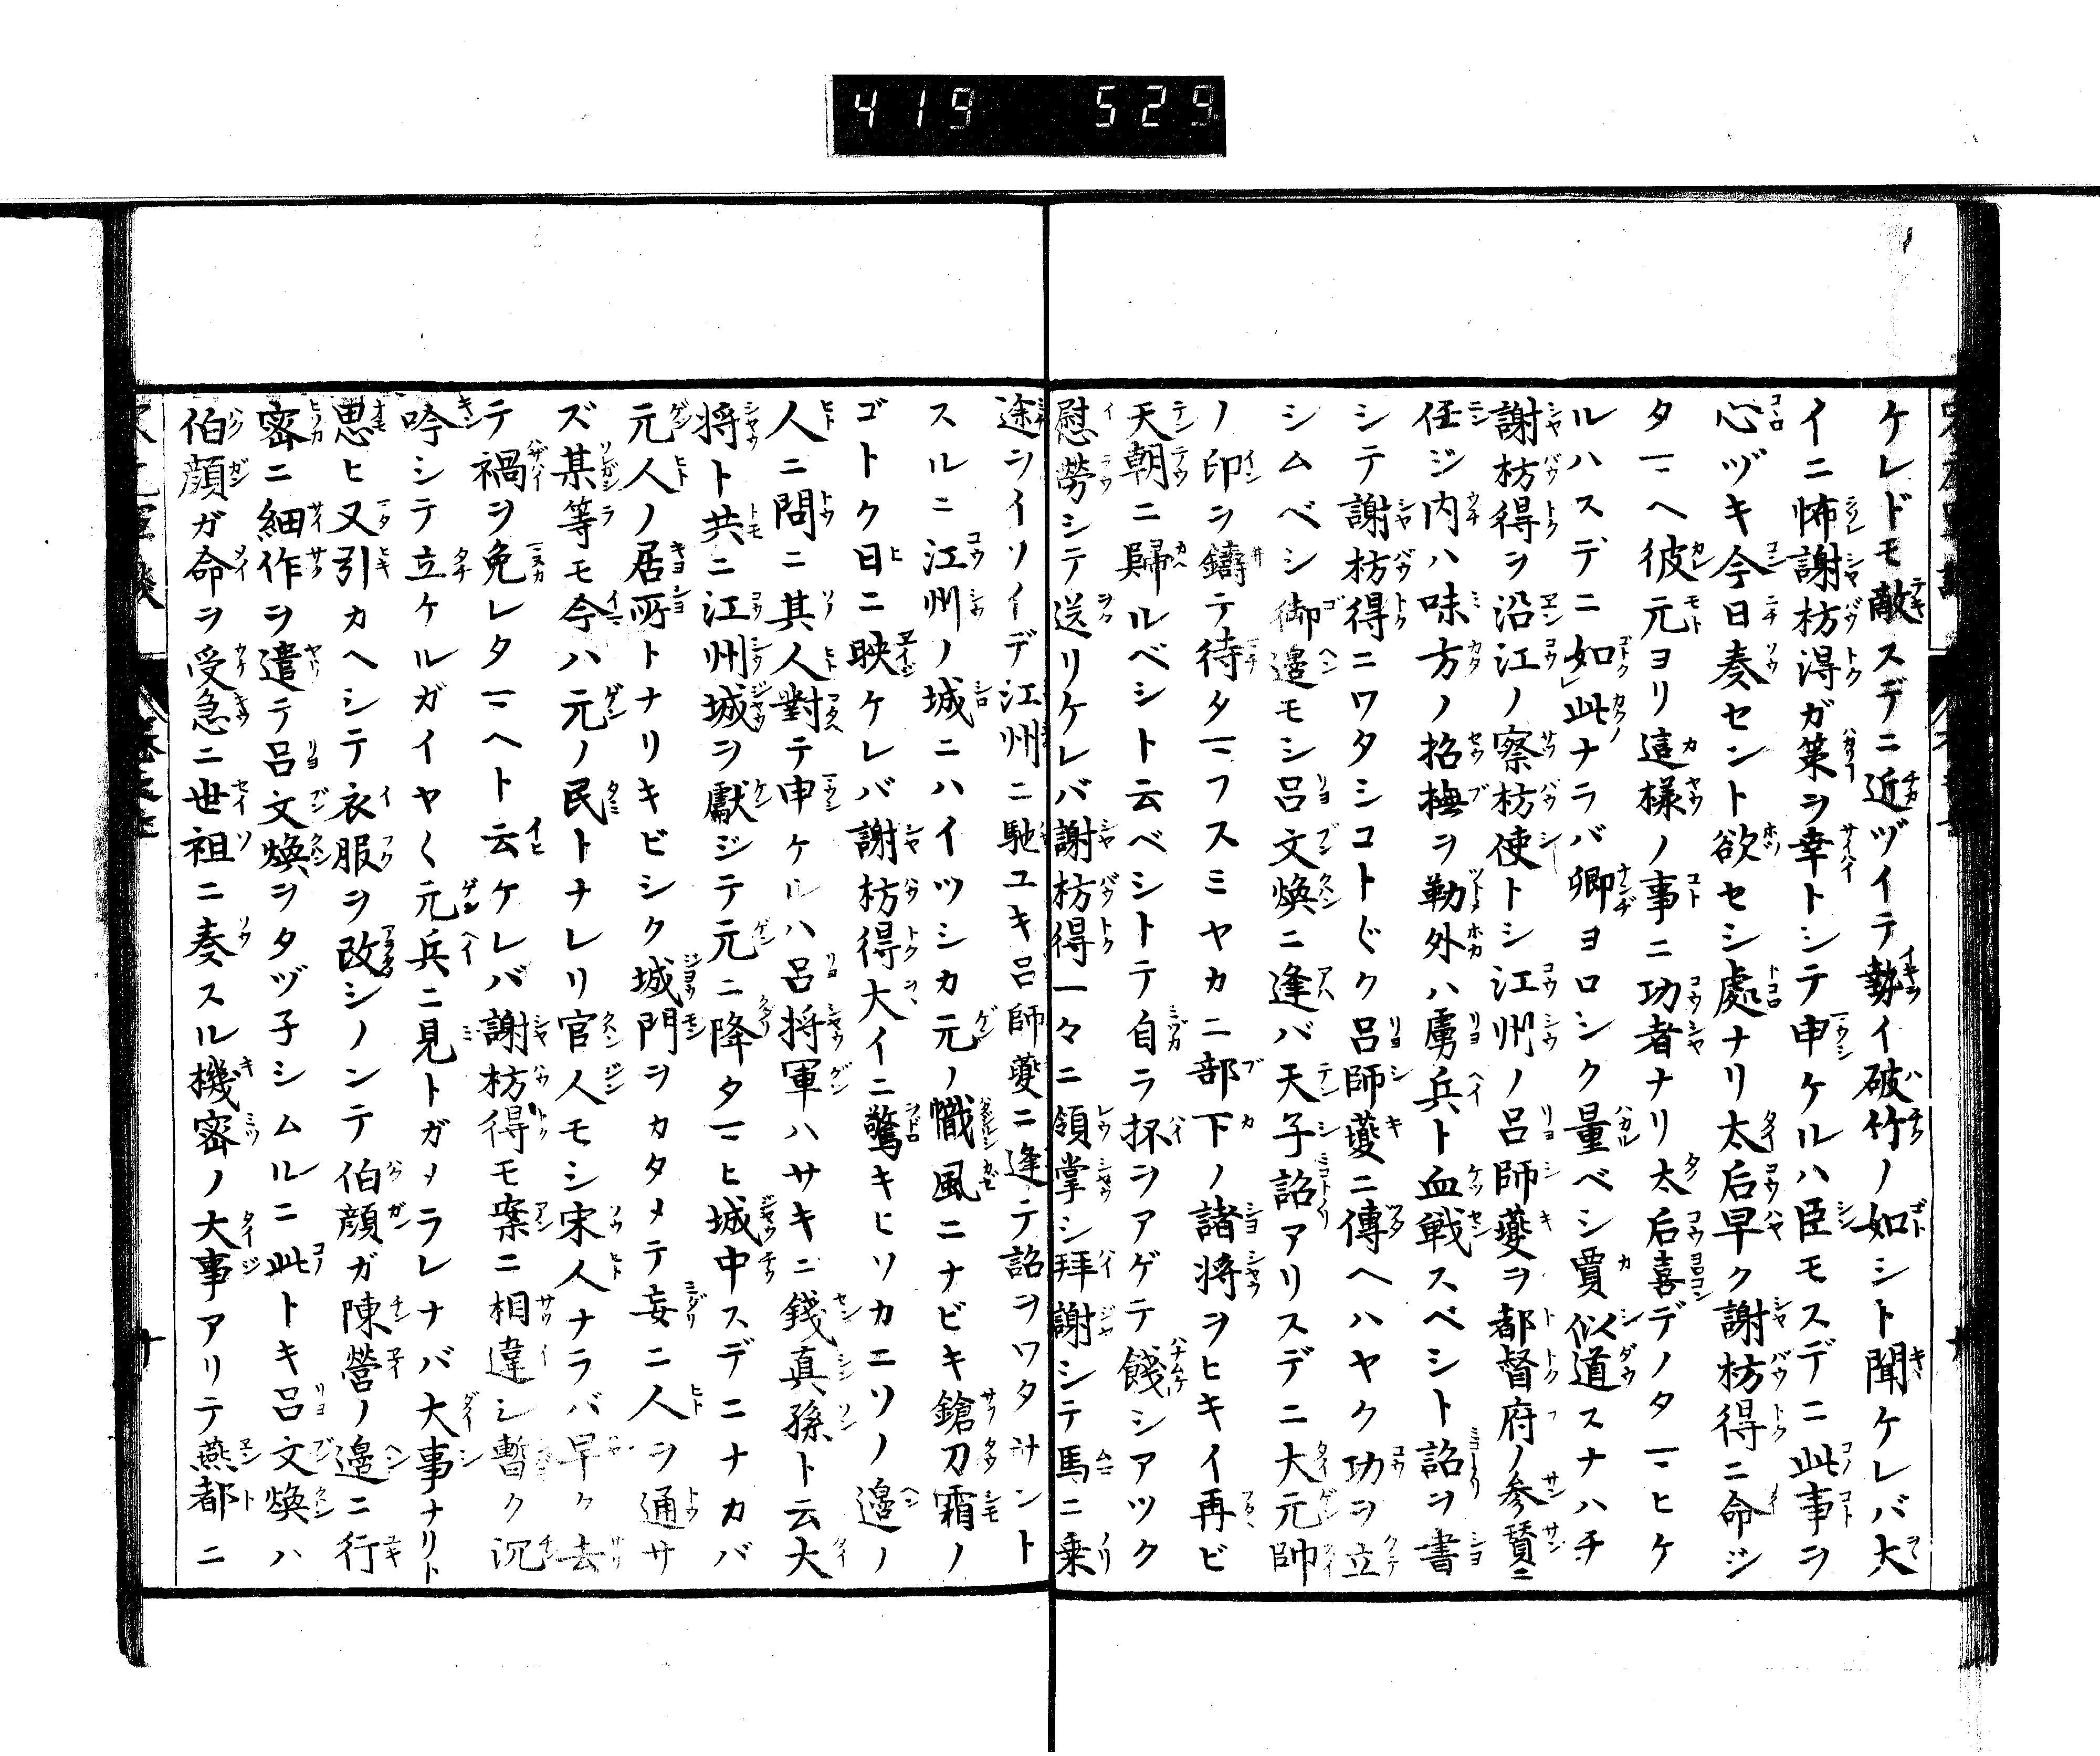 419 529
ケレドモ敵スデニ近ヅイテ勢イ破竹ノ如シト聞ケレバ大
イニ怖謝枋得ガ策ヲ幸トシテ申ケルハ臣モスデニ此事ヲ
心ヅキ今日奏セント欲セシ處ナリ太后早ク謝枋得ニ命ジ
タマヘ彼元ヨリ這樣ノ事ニ功者ナリ太后喜デノタマヒケ
ルハスデニ如此ナラバ卿ヨロシク量ベシ賈似道スナハチ
謝枋得ヲ沿江ノ察枋使トシ江州ノ呂師夔ヲ都督府ノ参賛ニ
任ジ内ハ味方ノ招撫ヲ勤外ハ虜兵ト血戦スベシト詔ヲ書
シテ謝枋得ニワタシコトぐク呂師夔ニ傳ヘハヤク功ヲ立
シムベシ御邉モシ呂文煥ニ逢バ天子詔アリスデニ大元帥
ノ印ヲ鑄テ待タマフスミヤカニ部下ノ諸将ヲヒキイ再ビ
天朝ニ歸ルベシト云ベシトテ自ラ杯ヲアゲテ餞シアツク
慰勞シテ送リケレバ謝枋得一々ニ領掌シ拜謝シテ馬ニ乗
途ヲイソイデ江州ニ馳ユキ呂師夔ニ逢テ詔ヲワタサント
スルニ江州ノ城ニハイツシカ元ノ幟風ニナビキ鎗刀霜ノ
ゴトク日ニ映ケレバ謝枋得大イニ驚キヒソカニソノ邉ノ
人ニ問ニ其人對テ申ケルハ呂将軍ハサキニ錢真孫ト云大
将ト共ニ江州城ヲ獻ジテ元ニ降タマヒ城中スデニナカバ
元人ノ居所トナリキビシク城門ヲカタメテ妄ニ人ヲ通サ
ズ某等モ今ハ元ノ民トナレリ官人モシ宋人ナラバ早ク去
テ禍ヲ免レタマヘト云ケレバ謝枋得モ案ニ相違シ暫ク沉
吟シテ立ケルガイヤく元兵ニ見トガメラレナバ大事ナリト
思ヒ又引カヘシテ衣服ヲ改シノンテ伯顔ガ陳營ノ邉ニ行
密ニ細作ヲ遣テ呂文煥ヲタヅ子シムルニ此トキ呂文煥ハ
伯顔ガ命ヲ受急ニ世祖ニ奏スル機密ノ大事アリテ燕都ニ